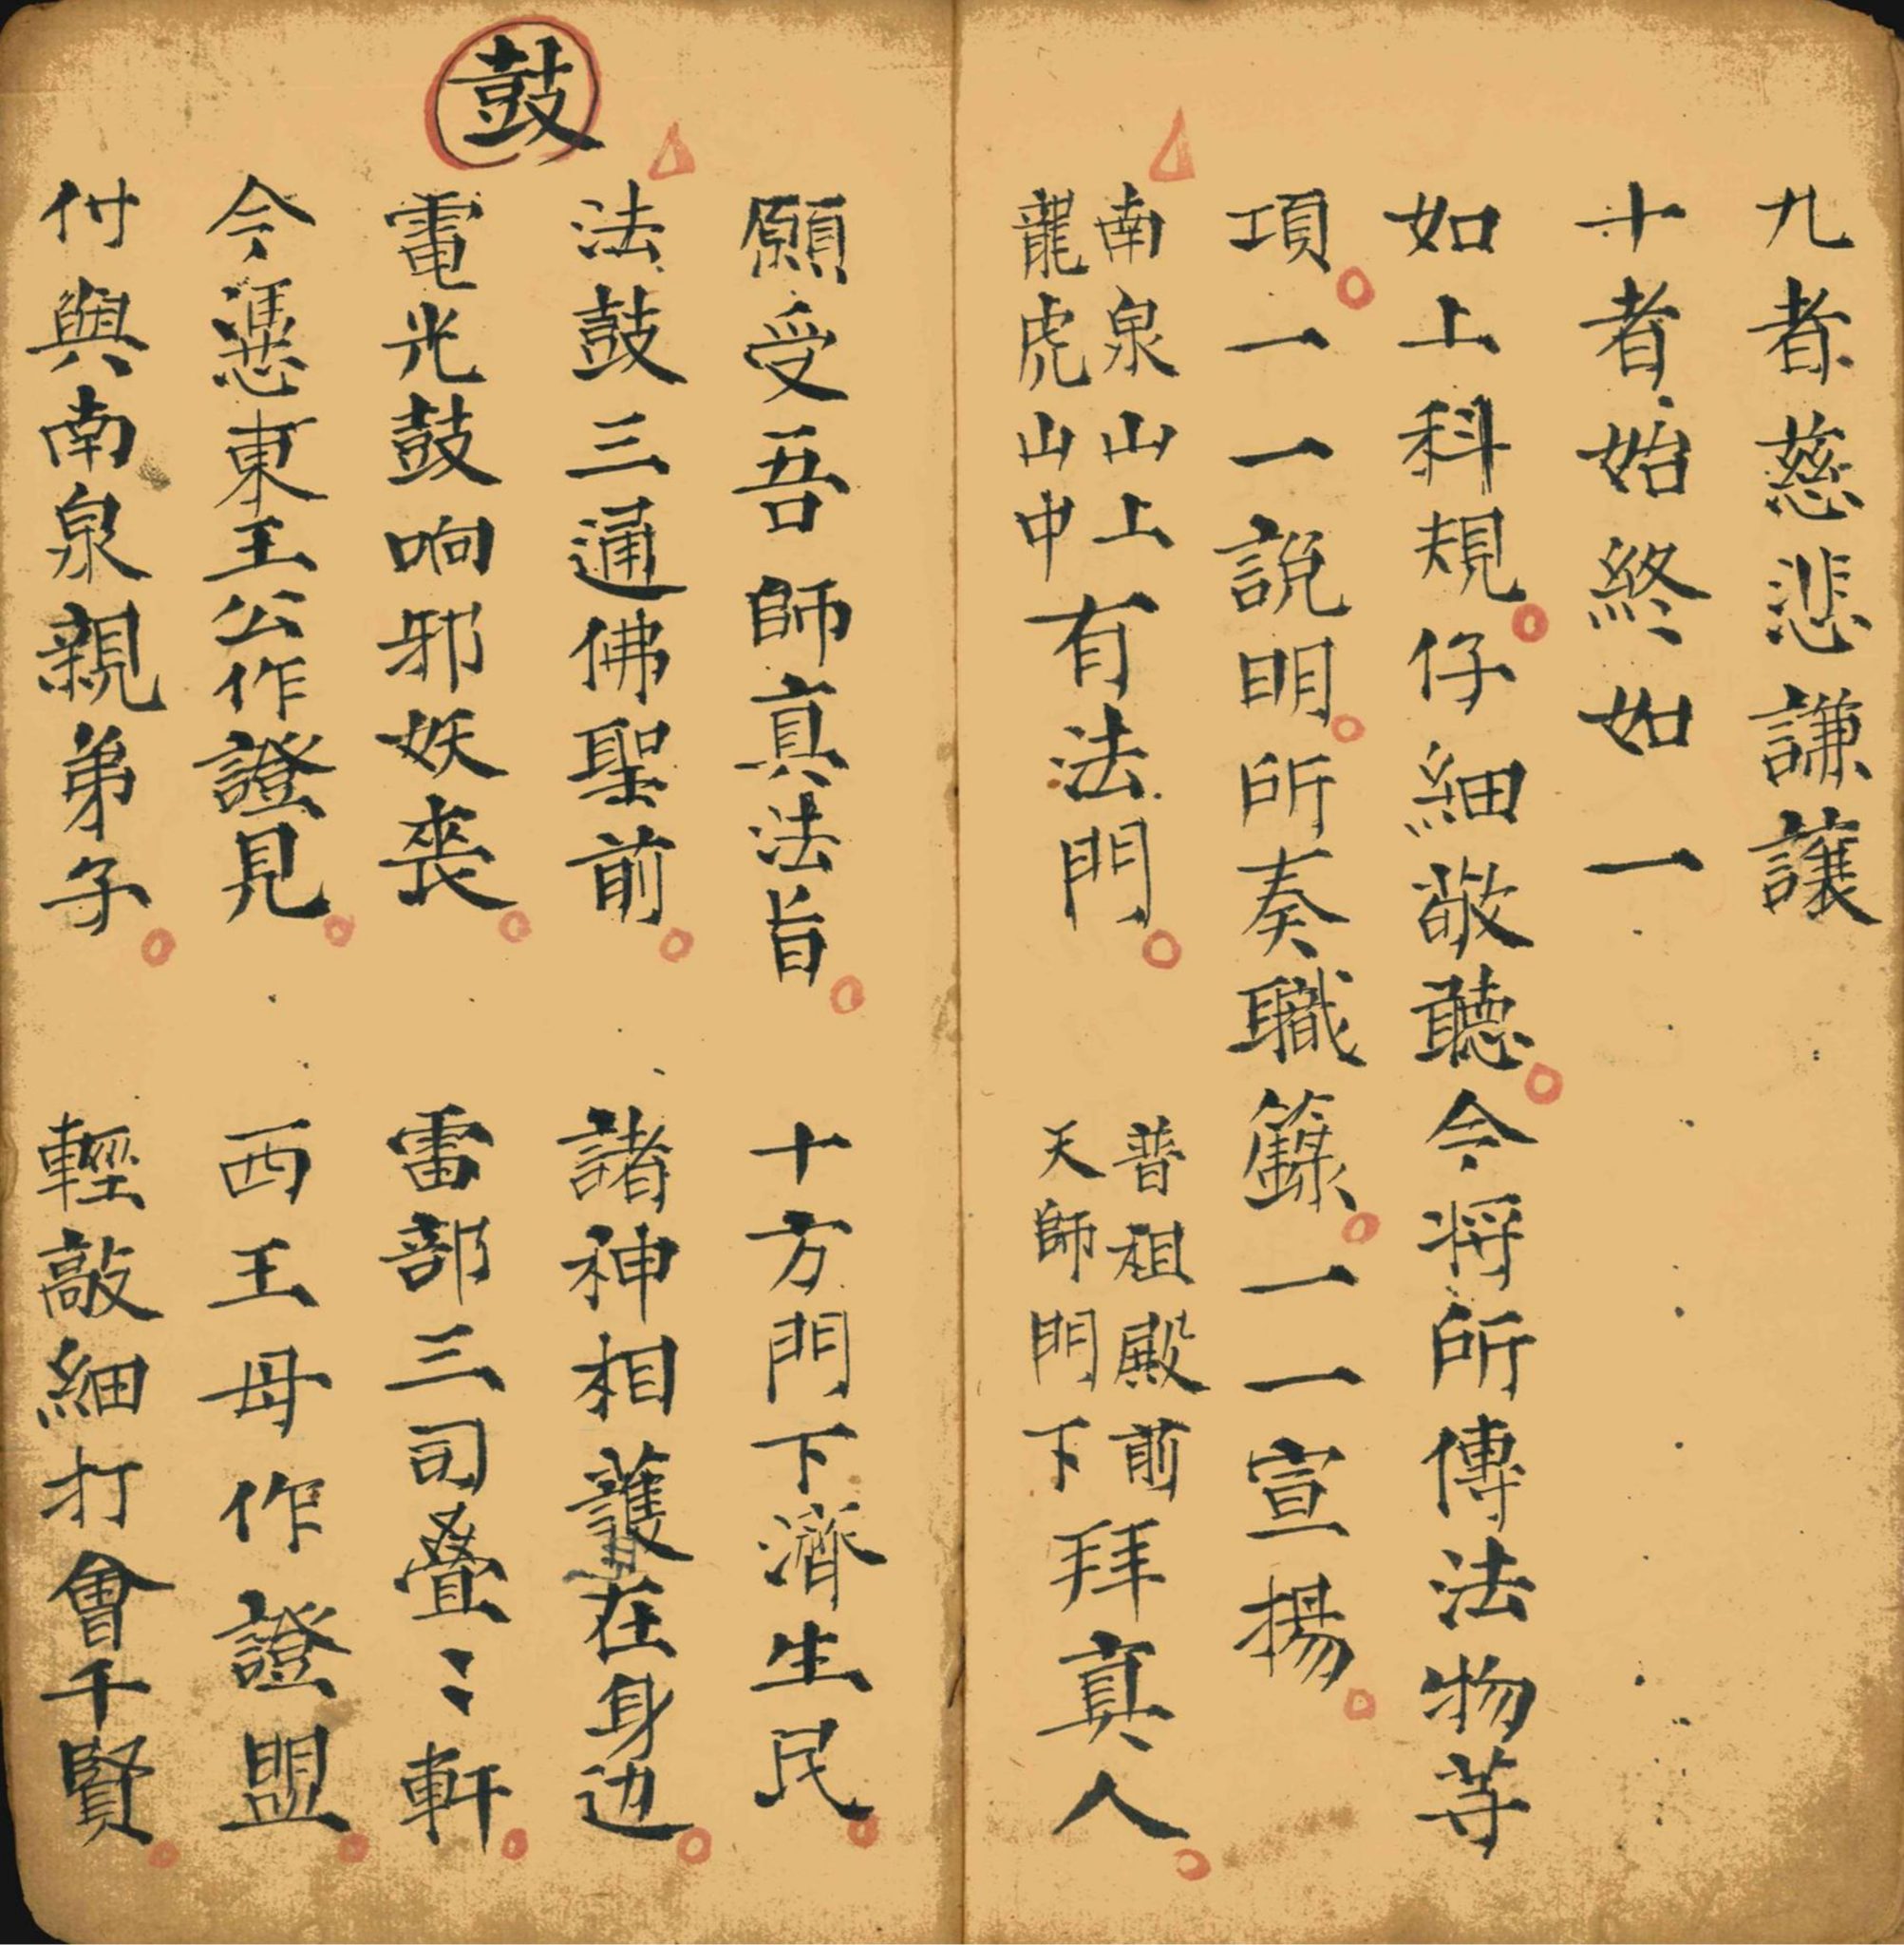 九者慈悲謙讓
十者始終如一
如上科規仔細敬聽今将所傳法物等
項一一說明所奏職籙一一宣揚
南泉山上
龍虎山中
有法門
普祖殿前
天師門下
拜真人
願受吾師真法旨 十方門下濟生民
法鼓三通佛聖前 諸神相護在身边
鼓
電光鼓响邪妖喪 雷部三司叠〻軒
今憑東王公作證見 西王母作證盟
付與南泉親弟子 輕敲細打會千賢